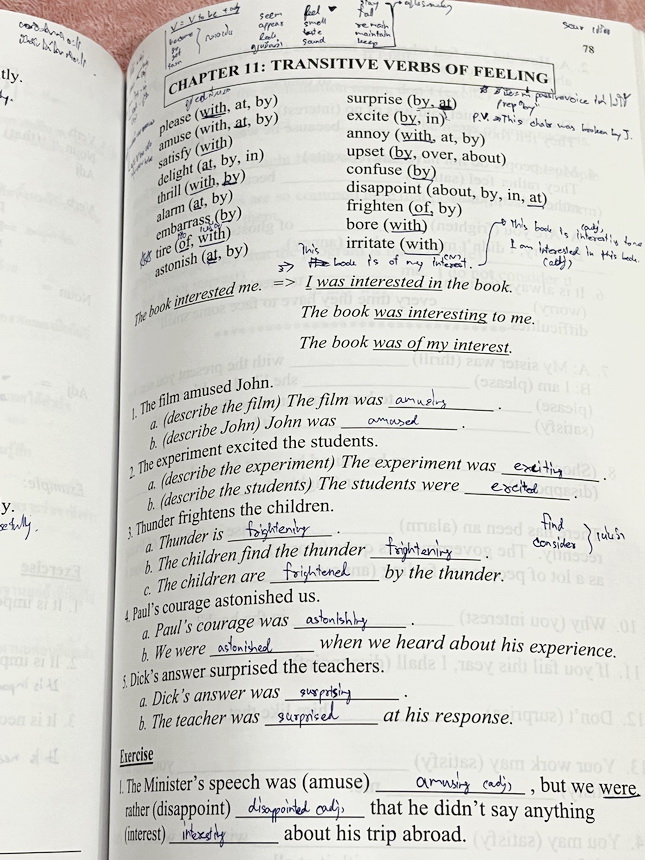 V = V to be + adj
become
get
turn
seem
appear
look
feel
smell
taste
sound
stay
fall
remain
maintain
keep
78
tly.
CHAPTER 11: TRANSITIVE VERBS OF FEELING
please (with, at, by)
amuse (with, at, by)
satisfy (with)
delight (at, by, in)
thrill (with, by)
alarm (at, by)
embarrass (by)
tire (of, with)
astonish (at, by)
surprise (by, at)
excite (by, in)
annoy (with, at, by)
upset (by, over, about)
confuse (by)
disappoint (about, by, in, at)
frighten (of, by)
bore (with)
irritate (with)
P.V. This chair was broken by J.
This book is interesting to me
(adj)
I am interested in this book.
(adj)
This book is of my interest.
(N)
The book interested me. => I was interested in the book.
The book was interesting to me.
The book was of my interest.
1. The film amused John.
a. (describe the film) The film was amusing .
b. (describe John) John was amused .
2. The experiment excited the students.
a. (describe the experiment) The experiment was exciting .
b. (describe the students) The students were excited .
3. Thunder frightens the children.
a. Thunder is frightening .
b. The children find the thunder frightening .
c. The children are frightened by the thunder.
find
consider
4. Paul's courage astonished us.
a. Paul's courage was astonishing .
b. We were astonished when we heard about his experience.
5. Dick's answer surprised the teachers.
a. Dick's answer was surprising .
b. The teacher was surprised at his response.
y.
Exercise
1. The Minister's speech was (amuse) amusing (adj) , but we were
rather (disappoint) disappointed (adj) that he didn't say anything
(interest) interesting about his trip abroad.